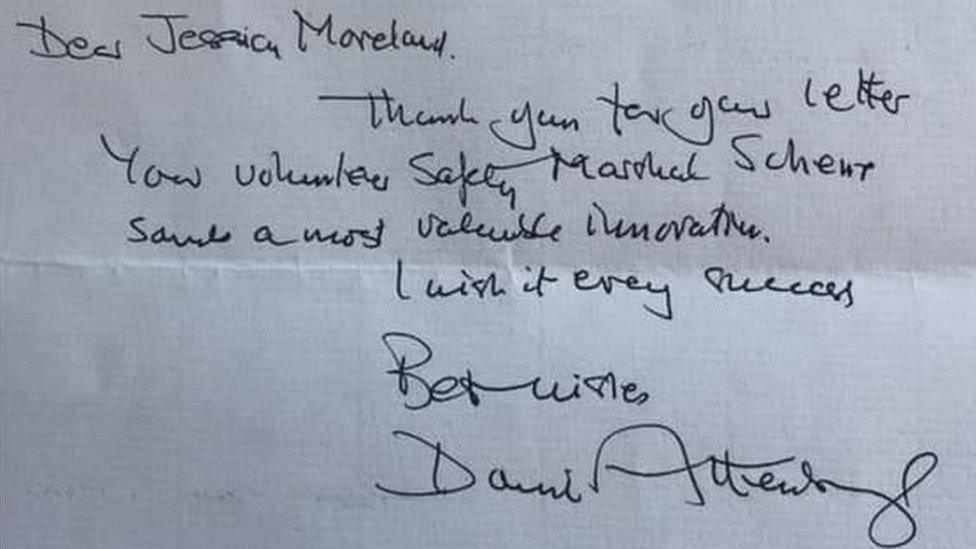 Dear Jessica Moreland.
Thank you for your letter
Your volunteer Safety Marshal Scheme
sounds a most valuable innovation.
I wish it every success
Best wishes
David Attenborough